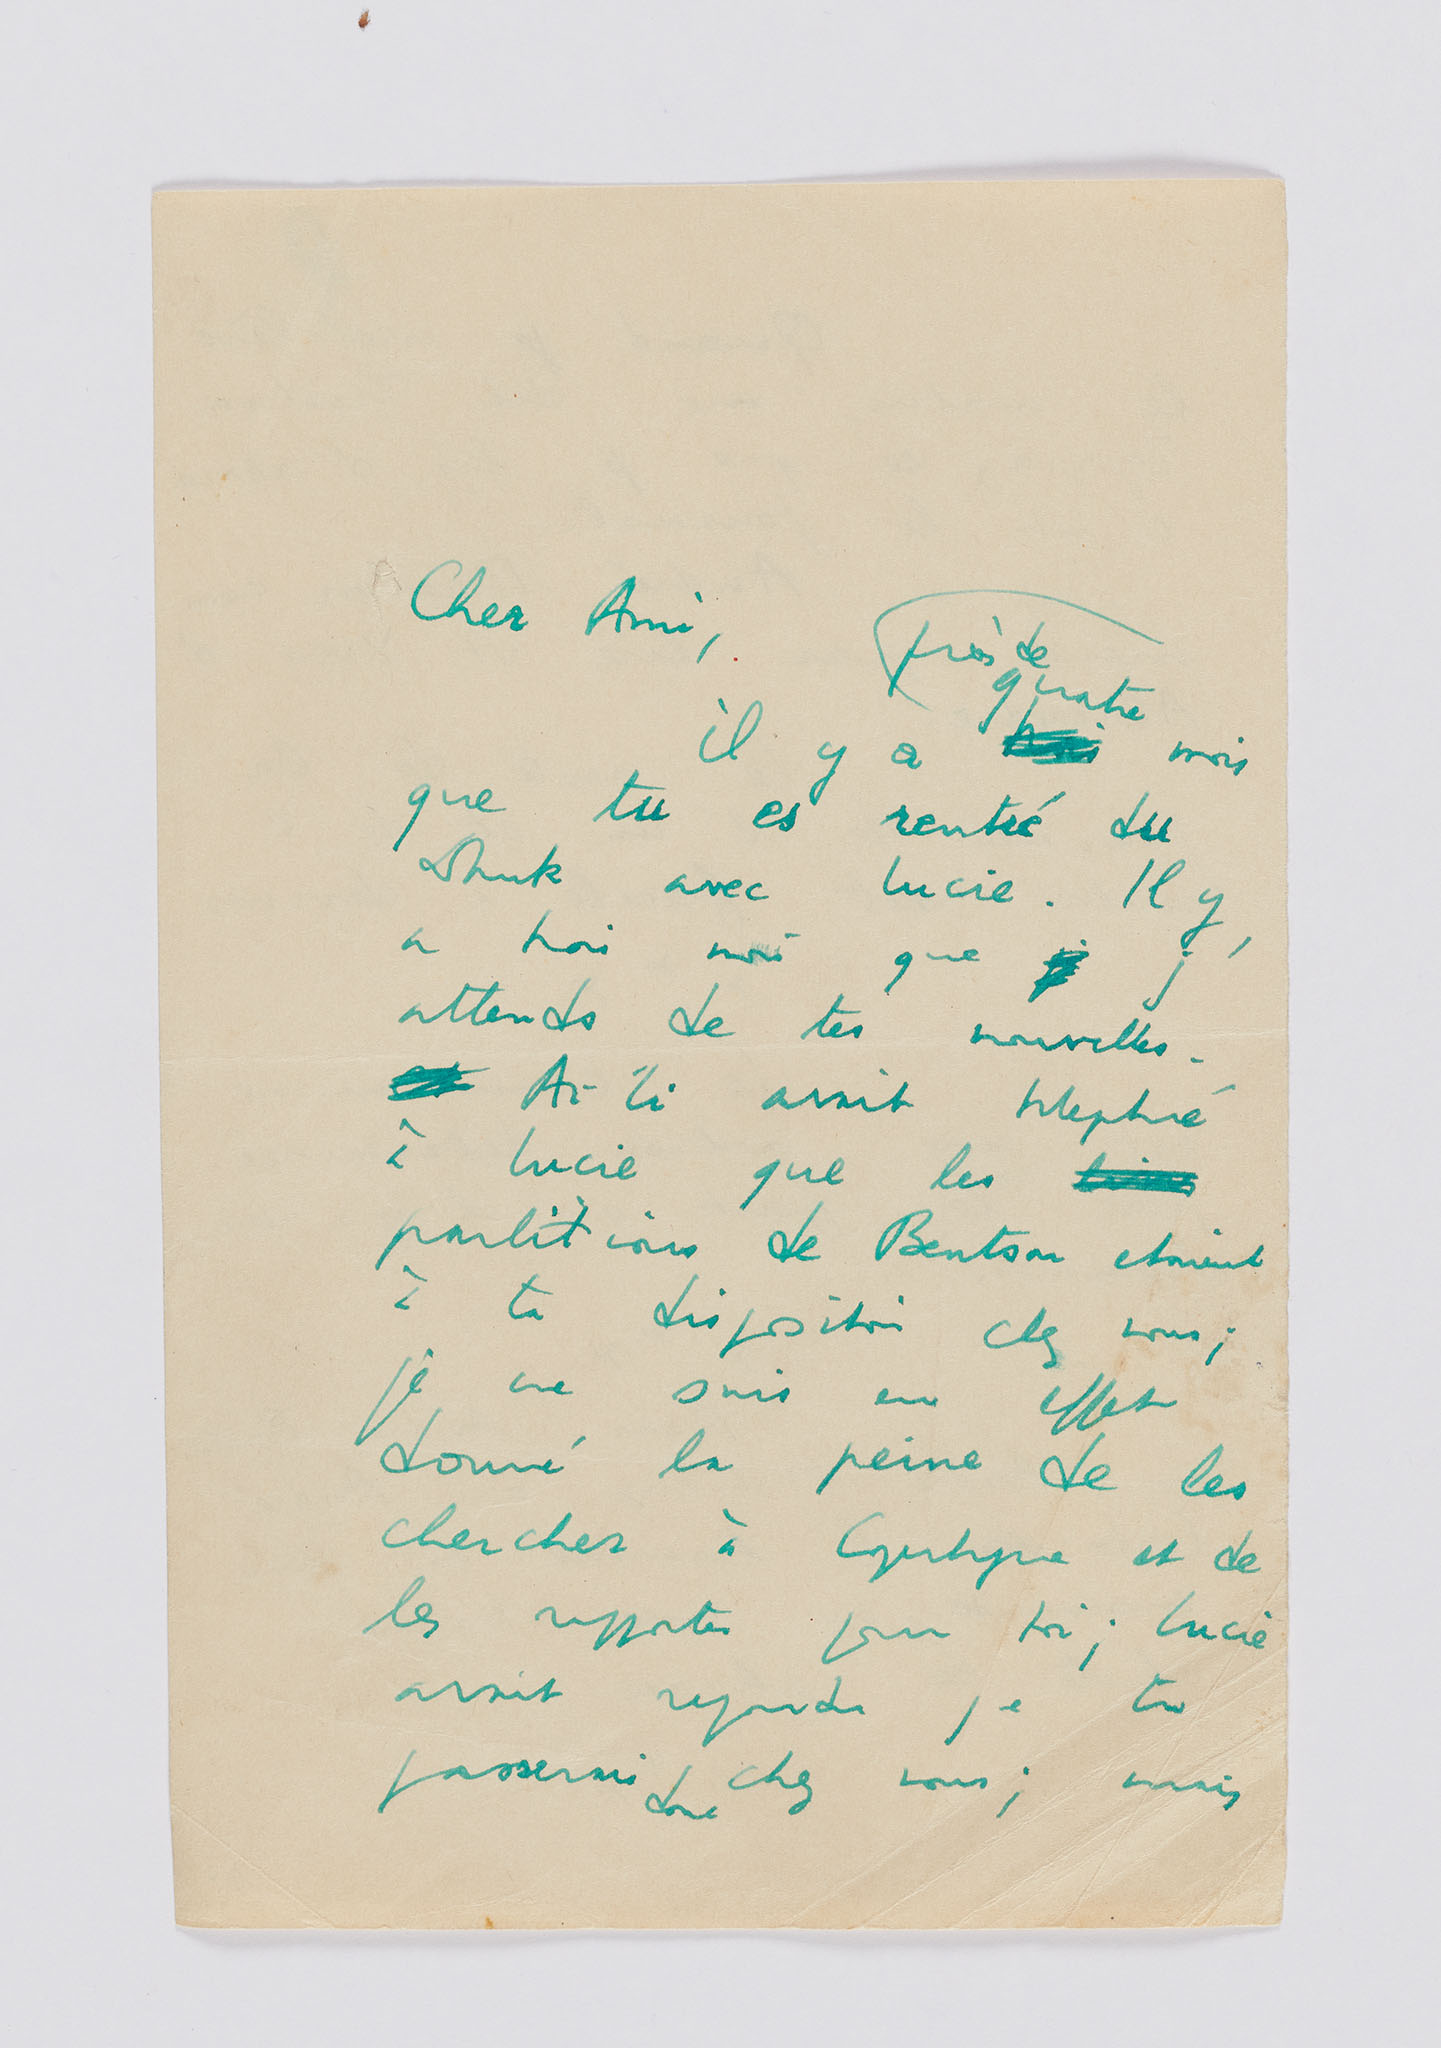 Cher Ami,
près de
quatre
il y a mois
que tu es rentré du
avec Lucie. Il y
a trois mois que j'
attends de tes nouvelles.
Ai-Li avait téléphoné
à Lucie que les
partitions de Bentzon étaient
à ta disposition chez nous;
je me suis en effet
donné la peine de les
chercher à et de
les rapporter pour toi; Lucie
avait repondu je
passerai chez vous; mais
donc